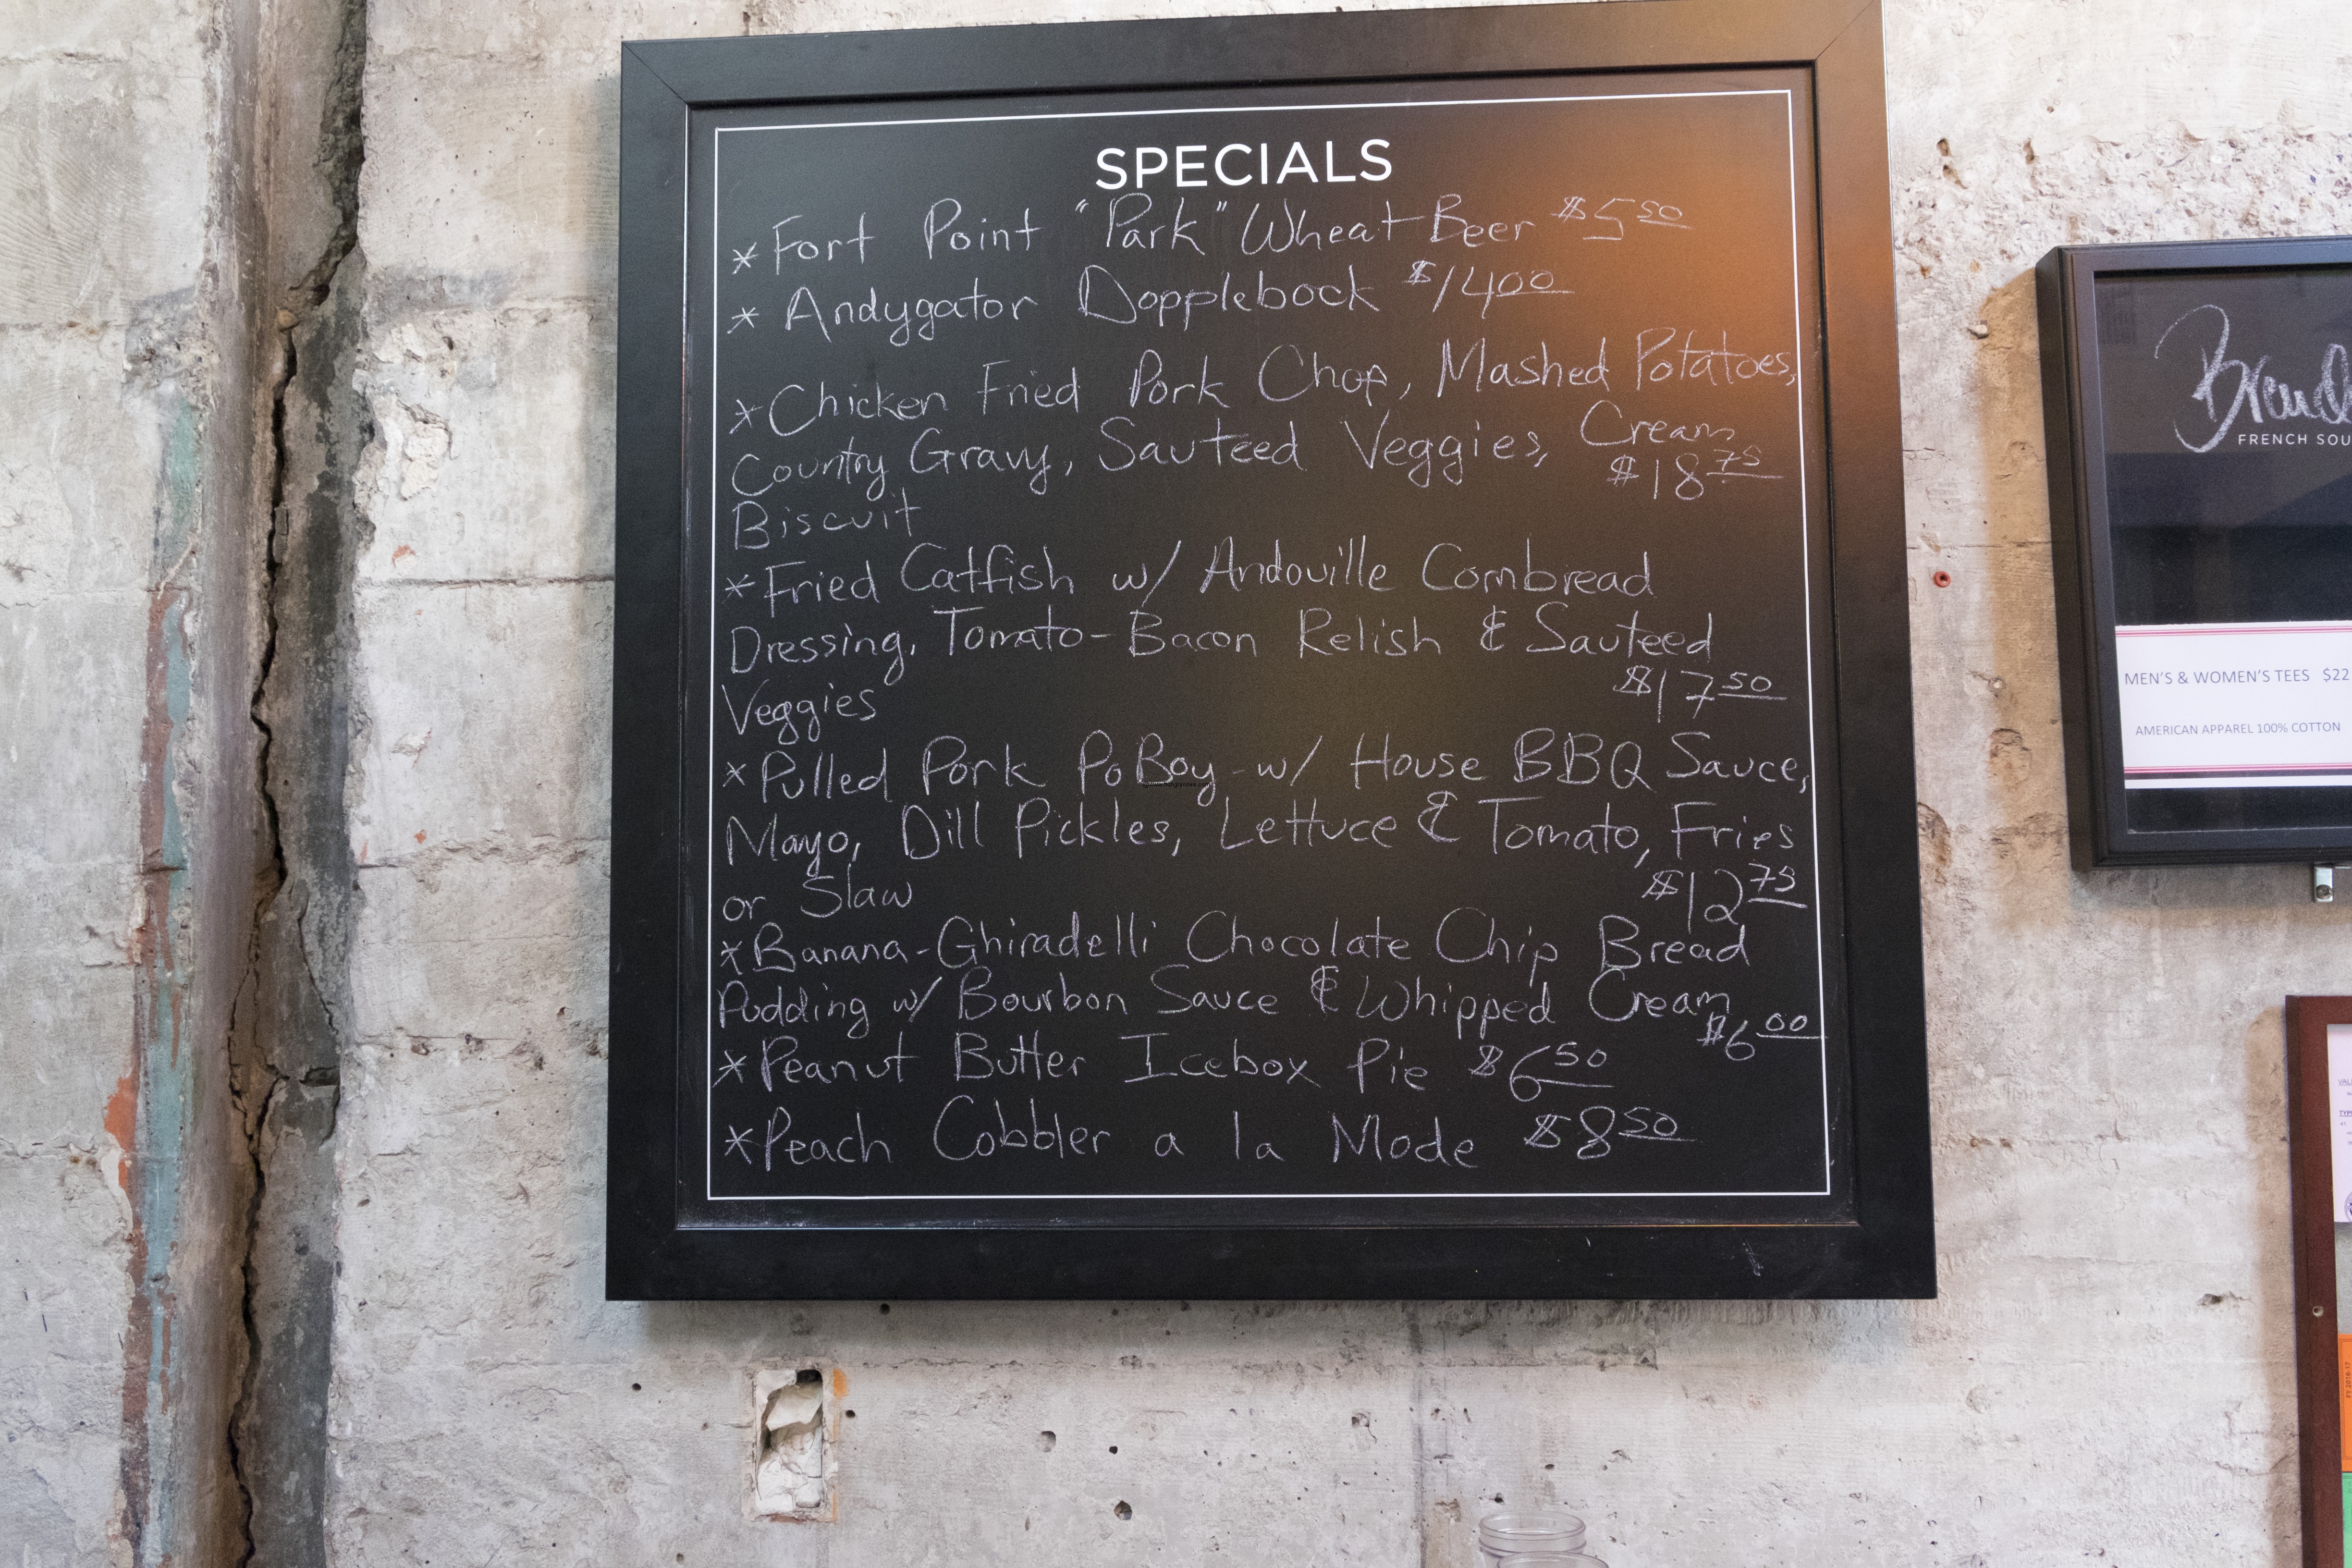 SPECIALS
*Fort Point "Park" Wheat Beer $5 50
* Andygator Dopplebock $14 00
*Chicken Fried Pork Chop, Mashed Potatoes,
Country Gravy, Sauteed Veggies, Cream
Biscuit $18 75
*Fried Catfish w/ Andouille Cornbread
Dressing, Tomato-Bacon Relish & Sauteed
Veggies $17 50
*Pulled Pork PoBoy w/ House BBQ Sauce,
Mayo, Dill Pickles, Lettuce & Tomato, Fries
or Slaw $12 75
*Banana-Ghiradelli Chocolate Chip Bread
Pudding w/ Bourbon Sauce & Whipped Cream
$6 00
*Peanut Butter Icebox Pie $6 50
*Peach Cobbler a la Mode $8 50
FRENCH SOU
MEN'S & WOMEN'S TEES $22
AMERICAN APPAREL 100% COTTON